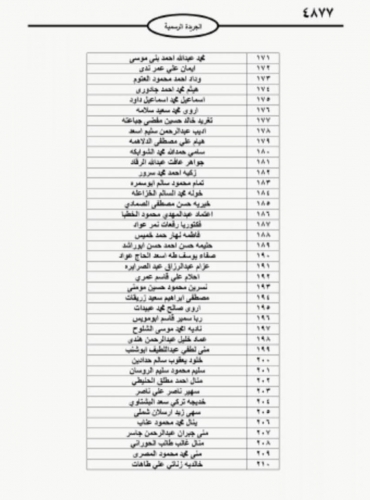 ٤٨٧٧
الجريدة الرسمية
١٧١ محمد عبدالله احمد بني موسى
١٧٢ ايمان علي عمر ندى
١٧٣ وداد احمد محمود العتوم
١٧٤ هيثم محمد احمد جادوري
١٧٥ اسماعيل محمد اسماعيل داود
١٧٦ اروى محمد سعيد سلامه
١٧٧ تغريد خالد حسين مفضي جباعته
١٧٨ اديب عبدالرحمن سليم اسعد
١٧٩ هيام علي مصطفى الدلاهمه
١٨٠ سامي حمدالله محمد الشوابكه
١٨١ جواهر عاقب عبدالله الرفاد
١٨٢ زكيه احمد محمد سرور
١٨٣ تمام محمود سالم ابوسمره
١٨٤ خوله محمد السالم الخزاعله
١٨٥ خيريه حسن مصطفى الصمادي
١٨٦ اعتماد عبدالمهدي محمود الخطبا
١٨٧ فكتوريا رفعات نمر عواد
١٨٨ فاطمه نهار حمد خميس
١٨٩ حليمه حسن احمد حسن ابوراشد
١٩٠ صفاء يوسف طه اسعد الحاج عواد
١٩١ عزام عبدالرزاق عيد الصرايره
١٩٢ احلام علي قاسم عمري
١٩٣ نسرين محمود حسين مومني
١٩٤ مصطفى ابراهيم سعيد زريقات
١٩٥ اروى صالح محمد عبيدات
١٩٦ ربا سمير قاسم ابومويس
١٩٧ ناديه اكيد موسى الشلوح
١٩٨ عماد خليل عبدالرحمن هندي
١٩٩ منى لطفي عبداللطيف ابوشنب
٢٠٠ خلود يعقوب سالم حدادين
٢٠١ سليم محمود سليم الروسان
٢٠٢ منال احمد مطلق الحنيطي
٢٠٣ سهير ناصر علي ناصر
٢٠٤ خديجه تركي سعد البشتاوي
٢٠٥ سهى زيد ارسلان شملي
٢٠٦ ينال محمد محمود عناب
٢٠٧ منى جبران عبدالرحمن جاسر
٢٠٨ منال غالب طالب الحوراني
٢٠٩ منى محمد محمود المصري
٢١٠ خالديه زناتي علي طاهات